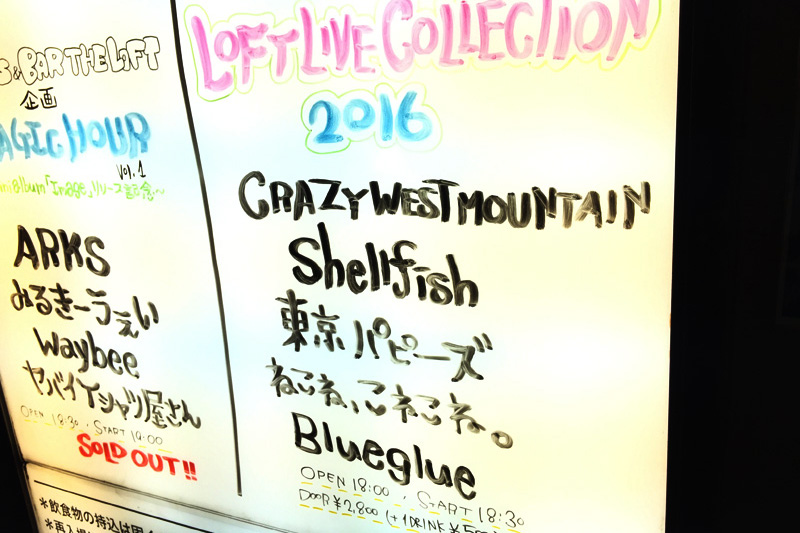 & BAR THE LOFT
企画
AGIC HOUR
Vol.1
album「Image」リリース記念~
ARKS
みるきーうぇい
waybee
ヤバイTシャツ屋さん
OPEN 18:30 . START 19:00
SOLD OUT!!
LOFT LIVE COLLECTION
2016
CRAZY WEST MOUNTAIN
Shellfish
東京パピーズ
ねこね、こねこね。
Blueglue
OPEN 18:00 . START 18:30
DOOR ¥2,800 (+1DRINK ¥5
*飲食物の持込は
*再入場